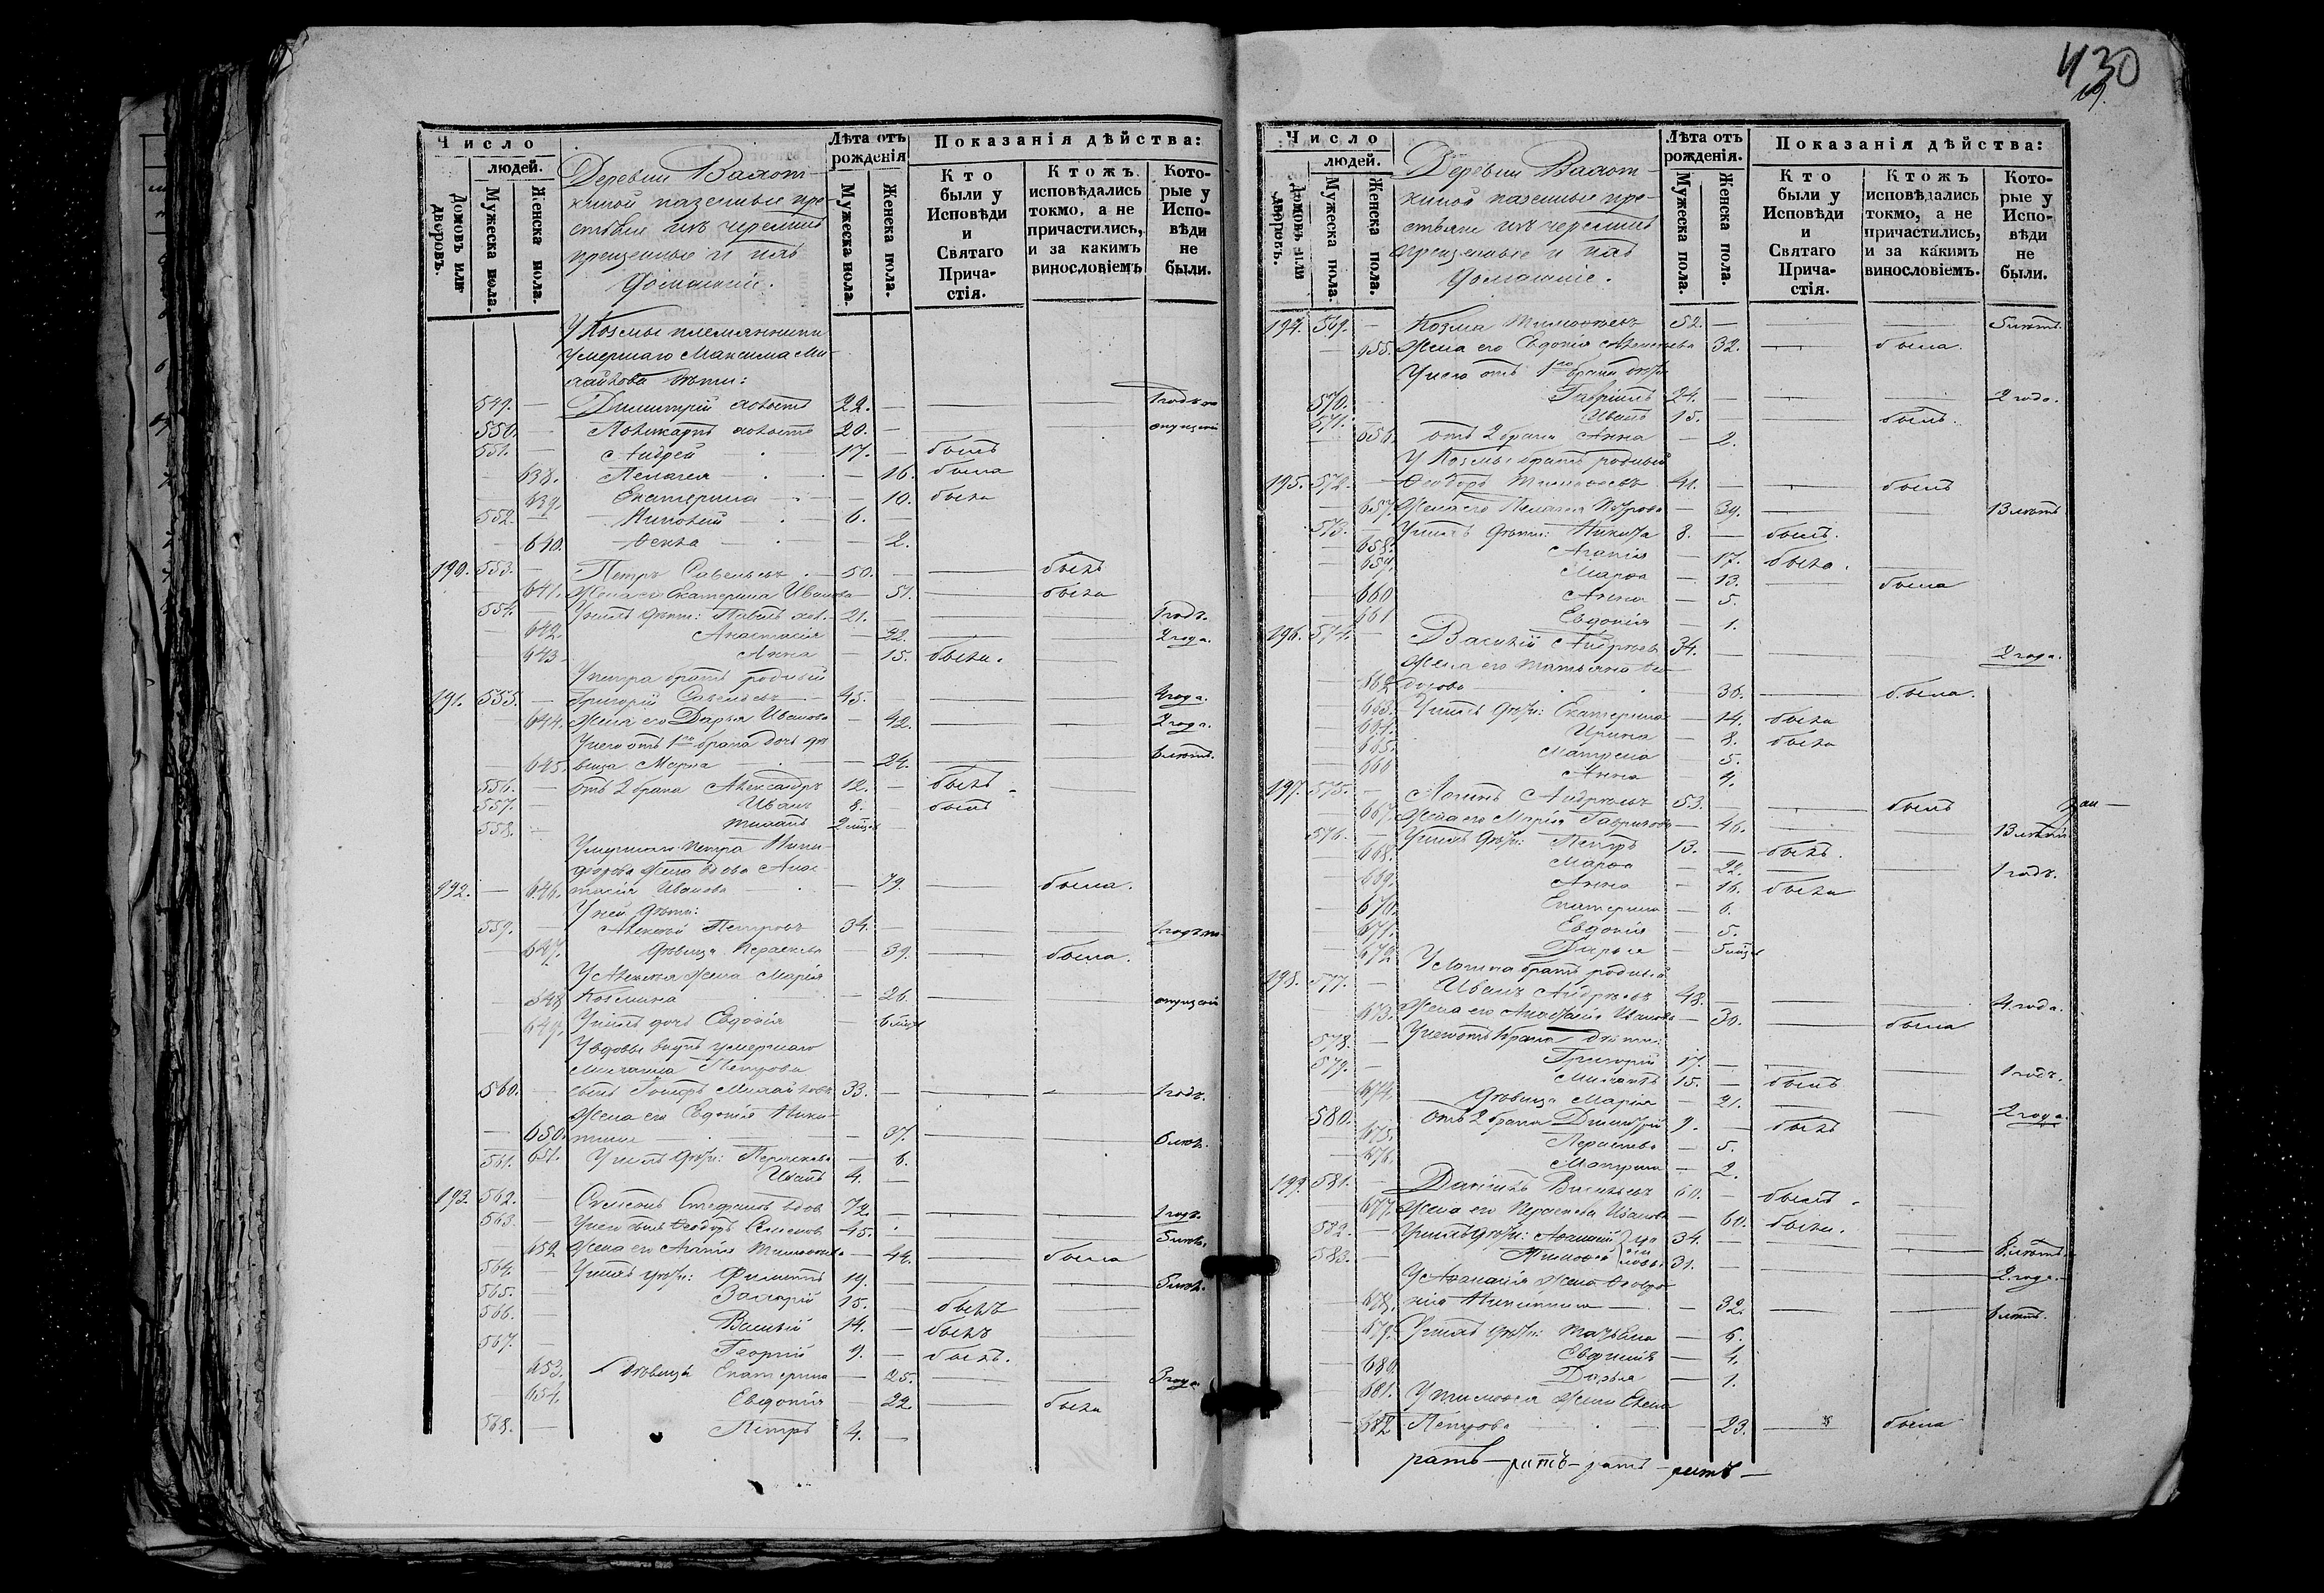 430
19.
Число
людей.
Домовъ или дворовъ.
Мужеска пола.
Женска пола.
Деревни
казенные кре-
стьяне изъ
крещенные и ихъ
домашніе.
Лѣта отъ рожденія
Мужеска пола.
Женска пола.
Показанія дѣйства:
Кто были у Исповѣди и Святаго Причастія.
Ктожъ исповѣдались токмо, а не причастились, и за какимъ винословіемъ
Которые у Исповѣди не были.
У Козмы племянники
умершаго Максима Ми-
хайлова дѣти:
549. — Димитрій холостъ 22. —
550. — холостъ 20. —
551. — Андрей 17. — былъ
— 638. Пелагея — 16. была
— 639. Екатерина — 10. была
552. — 6. —
— 640. Ѳекла — 2.
190. 553. — Петръ Савельевъ 50. — былъ
— 641. Жена его Екатерина Иванова — 51. была
554. — У нихъ дѣти: Павелъ хол. 21. — 1 годъ.
— 642. Анастасія — 22. 2 года.
— 643. Анна — 15. была.
У Петра братъ родный
191. 555. — Григорій Савельевъ 45. — 2 года.
— 644. Жена его Дарья Иванова — 42. 2 года.
У него отъ 1го брака дочь дѣ-
— 645. вица Марѳа — 24. 6 лѣтъ.
556. — отъ 2 брака Александръ 12. — былъ
557. — Иванъ 8. — былъ
558. — 2 мѣся —
Умершаго Петра Ники-
форова жена вдова Анас-
192. — 646. тасія Иванова — 79. была.
У ней дѣти:
559. — Алексѣй Петровъ 34. —
— 647. дѣвица Параскева — 39. была.
У Алексѣя жена Марія
— 648 Козмина — 26.
— 649. У нихъ дочь Евдокія — 6 мѣся
У вдовы внукъ умершаго
Михаила Петрова
560. — сынъ Михайловъ 33. — 1 годъ.
Жена его Евдокія Ники-
— 650. тина — 37. 6 лѣт.
— 651. У нихъ дѣти: Параскева — 6.
561. Иванъ 4. —
193. 562. — Симеонъ Стефановъ вдов 72. — 1 годъ.
563. — У него сынъ Ѳеодоръ Семенов 45. 5 лѣт.
652 Жена его Агапія Тимоѳеева — 44. была
564. — У нихъ дѣти: Филиппъ 19. 5 лѣт.
565. — Захарій 15. — былъ
566. — Василій 14. — былъ
567. — Георгій 9. — былъ.
653. Дѣвицы Екатерина — 25. 3 года
— 654. Евдокія — 22. была
568. — Петръ 4. —
Число
людей.
Домовъ или дворовъ.
Мужеска пола.
Женска пола.
Деревни
казенные кре-
стьяне изъ
крещенные и ихъ
домашніе.
Лѣта отъ рожденія.
Мужеска пола.
Женска пола.
Показанія дѣйства:
Кто были у Исповѣди и Святаго Причастія.
Ктожъ исповѣдались токмо, а не причастились, и за какимъ винословіемъ.
Которые у Исповѣди не были.
194. 569. — Козма Тимоѳеевъ 52. — 5 лѣтъ.
— 655. Жена его Евдокія Алексѣева 32. была.
У него отъ 1го брака дѣти
570. Гавріилъ 24. — 2 года.
571. Иванъ 15. — былъ.
— 656. отъ 2 брака Анна — 2.
У Козмы братъ родный
195. 572. — Ѳеодоръ Тимоѳеевъ 41. — былъ
— 657. Жена его Пелагея Петрова — 39. 13 лѣтъ
573. — У нихъ дѣти: Никита 8. — былъ.
— 658. Агапія — 17. была.
— 659. Марѳа — 13. была
— 660 Анна — 5.
— 661 Евдокія — 1.
196. 574. — Василій Андреевъ 34. — 2 года.
Жена его Татьяна Ѳео-
— 662 дорова 36. была.
— 663. У нихъ дѣти: Екатерина — 14. была
— 664. Ирина — 8. была
— 665. Матрена — 5.
— 666 Анна 4.
197. 575. — Логинъ Андреевъ 53. — былъ
— 667. Жена его Марія Гаврилова — 46. 13 лѣтъ
576. — У нихъ дѣти: Петръ 13. — былъ.
— 668. Марѳа — 22. 1 годъ.
— 669. Анна — 16. была
— 670. Екатерина — 6.
— 671. Евдокія — 5.
— 672 Дарья — 5 мѣся
У Логина братъ родный
198. 577. — Иванъ Андреевъ 48. — 4 года.
— 673. Жена его Анастасія Иванова — 30. была
578. — У него отъ 1 брака дѣти:
Григорій 17. — 1 годъ.
579. — Михаилъ 15. — былъ
— 674. дѣвица Марія — 21. 2 года
580. отъ 2 брака Димитрій 9. — былъ
— 675. Параскева — 5.
— 676. Матрена — 2.
199. 581. — Даніилъ Васильевъ 60. — былъ
— 677. Жена его Параскева Иванова — 60. была.
582. — У нихъ дѣти: Аѳанасій 34. — 8 лѣтъ.
583. Тимоѳей 31. — 2 года.
У Аѳанасія жена Ѳеодо-
— 678. сія Никитина — 32. 6 лѣтъ.
— 679. У нихъ дѣти: Татьяна — 6.
— 680 Евфимія — 4.
— 681. Дарья — 1.
У Тимоѳея жена Елена
— 682 Петрова 23. была
рать — рить — рать — рить —